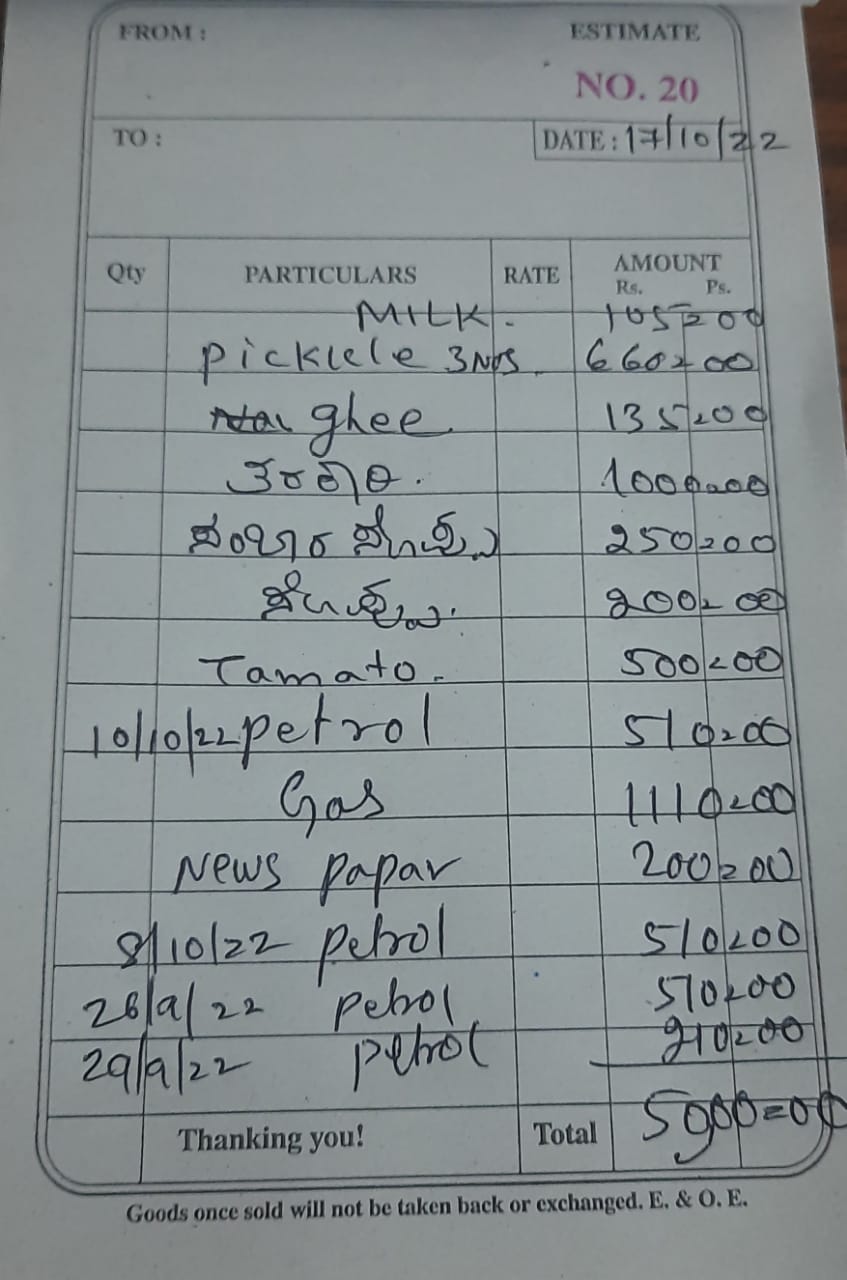 FROM :
ESTIMATE
NO. 20
TO :
DATE : 17/10/22
Qty PARTICULARS RATE AMOUNT
Rs. Ps.
MILK. 105=00
Picklele 3Nos. 660=00
ghee 135=00
ತರಕಾರಿ. 1000=00
ಸಂಬಾರ ಸೊಪ್ಪು 250=00
ಸೊಪ್ಪು. 200=00
Tamato. 500=00
10/10/22 petrol 510=00
Gas 1110=00
News papar 200=00
8/10/22 petrol 510=00
26/9/22 petrol 510=00
29/9/22 petrol 210=00
Thanking you! Total 5900=00
Goods once sold will not be taken back or exchanged. E. & O. E.